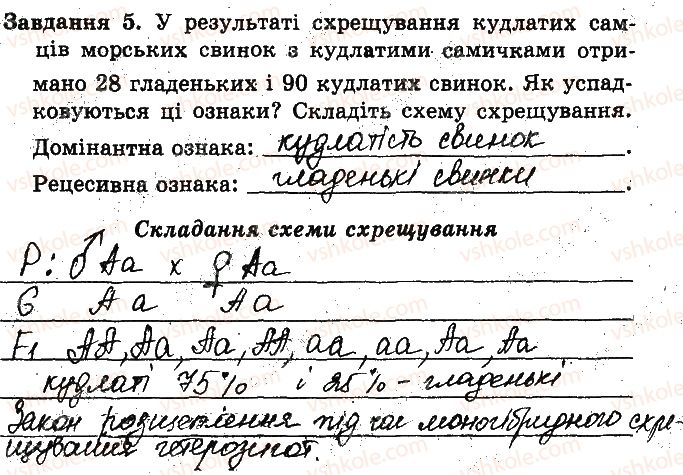 Завдання 5. У результаті схрещування кудлатих сам-
ців морських свинок з кудлатими самичками отри-
мано 28 гладеньких і 90 кудлатих свинок. Як успад-
ковуються ці ознаки? Складіть схему схрещування.
Домінантна ознака: кудлатість свинок.
Рецесивна ознака: гладенькі свинки.
Складання схеми схрещування
P: ♂ Aa x ♀ Aa
G A a A a
F1 AA, Aa, Aa, AA, aa, aa, Aa, Aa
кудлаті 75% і 25% - гладенькі
Закон розщеплення під час моногібридного схре-
щування гетерозигот.